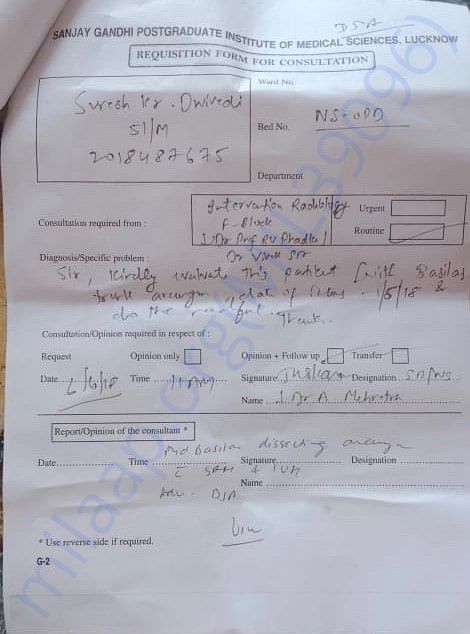 DSA
SANJAY GANDHI POSTGRADUATE INSTITUTE OF MEDICAL SCIENCES, LUCKNOW
REQUISITION FORM FOR CONSULTATION
Ward No.
Suresh Kr. Dwivedi
51/M
2018487675
NS-OPD
Bed No.
Department
Consultation required from :
Intervention Radiology
F-Block
Dr Prof RV Phadke
Dr Vivek Sir
Urgent
Routine
Diagnosis/Specific problem :
Sir, Kindly evaluate this patient with Basilar
trunk aneurysm, date of ictus - 1/5/18 &
do the needful.
Thank..
Consultation/Opinion required in respect of :
Request Opinion only Opinion + Follow up Transfer
Date 2/6/18 Time 11 AM Signature Designation SR/NS
Name Dr A Mehrotra
Report/Opinion of the consultant *
Mid Basilar dissecting aneurysm
Date Time Signature Designation
c SAH & IVH
Name
Adv. DSA
* Use reverse side if required.
G-2
milaap.org